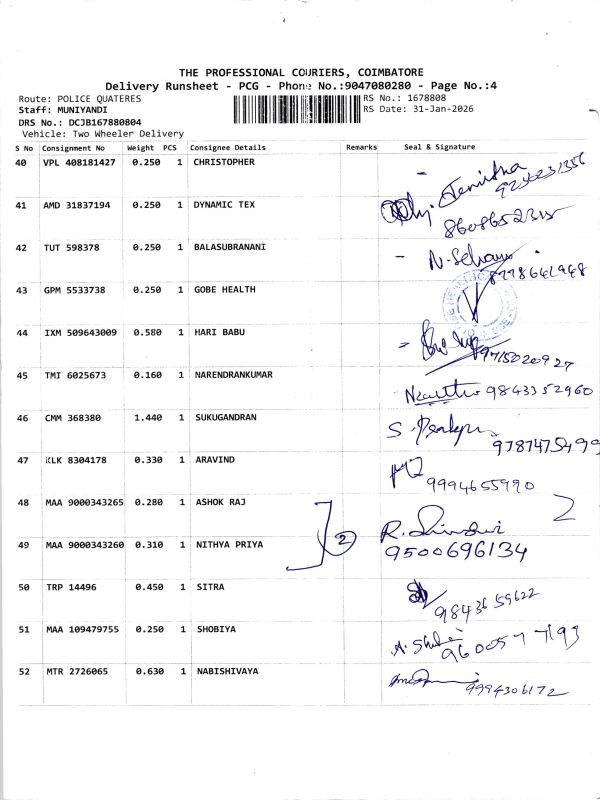 THE PROFESSIONAL COURIERS, COIMBATORE
Delivery Runsheet - PCG - Phone No.:9047080280 - Page No.:4
Route: POLICE QUATERES
RS No.: 1678808
Staff: MUNIYANDI
RS Date: 31-Jan-2026
DRS No.: DCJB167880804
Vehicle: Two Wheeler Delivery
S No Consignment No Weight PCS Consignee Details Remarks Seal & Signature
40 VPL 408181427 0.250 1 CHRISTOPHER
41 AMD 31837194 0.250 1 DYNAMIC TEX
42 TUT 598378 0.250 1 BALASUBRANANI - N. Selvam
43 GPM 5533738 0.250 1 GOBE HEALTH
44 IXM 509643009 0.580 1 HARI BABU 9715020927
45 TMJ 6025673 0.160 1 NARENDRANKUMAR 9843352960
46 CMM 368380 1.440 1 SUKUGANDRAN S.
47 KLK 8304178 0.330 1 ARAVIND 9994655990
48 MAA 9000343265 0.280 1 ASHOK RAJ 2
49 MAA 9000343260 0.310 1 NITHYA PRIYA 2 9500696134
50 TRP 14496 0.450 1 SITRA 9843659622
51 MAA 109479755 0.250 1 SHOBIYA
52 MTR 2726065 0.630 1 NABISHIVAYA 9994306172